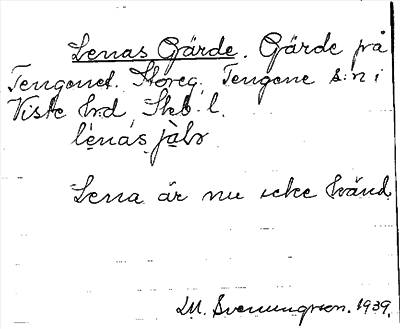 Lenas Gärde. Gärde på
Tengenet. Storeg. Tengene s:n i
Viste hrd, Skb. l.
lènas jàlr
Lena är nu icke känd.
M. Svenungsson. 1939.